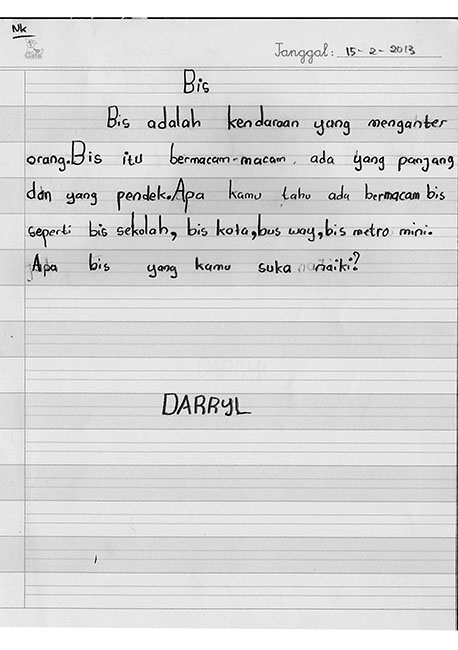 Nk
Tanggal: 15-2-2013
Bis
Bis adalah kendaraan yang menganter
orang. Bis itu bermacam-macam, ada yang panjang
dan yang pendek. Apa kamu tahu ada bermacam bis
seperti bis sekolah, bis kota, bus way, bis metro mini.
Apa bis yang kamu suka naiki?
DARRYL